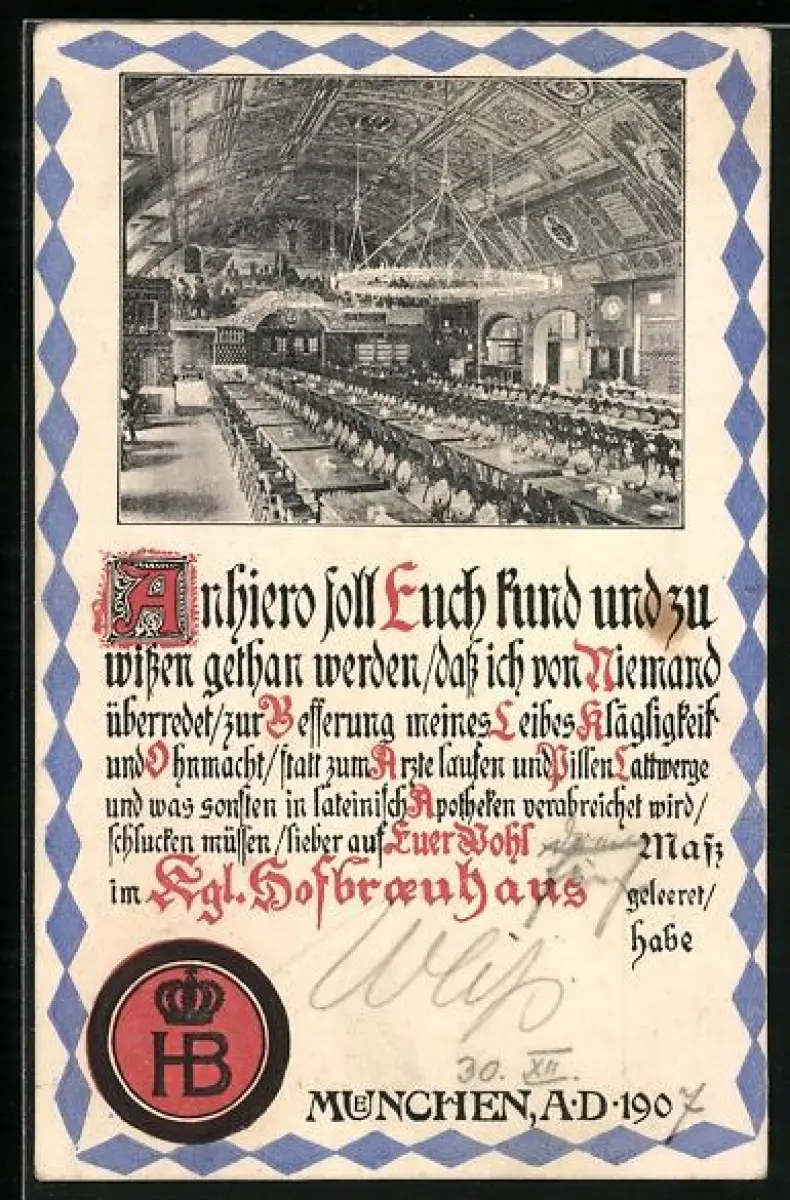 Anhiero soll Euch kund und zu
wißen gethan werden/daß ich von Niemand
überredet/zur Besserung meines Leibes Klägligkeit
und Ohnmacht/statt zum Arzte laufen und Pillen Lattwerge
und was sonsten in lateinisch Apotheken verabreichet wird/
schlucken müssen/lieber auf Euer Wohl Masz
im Kgl. Hofbræuhaus geleeret/
habe
HB
30. XII.
MUENCHEN, A·D·1907